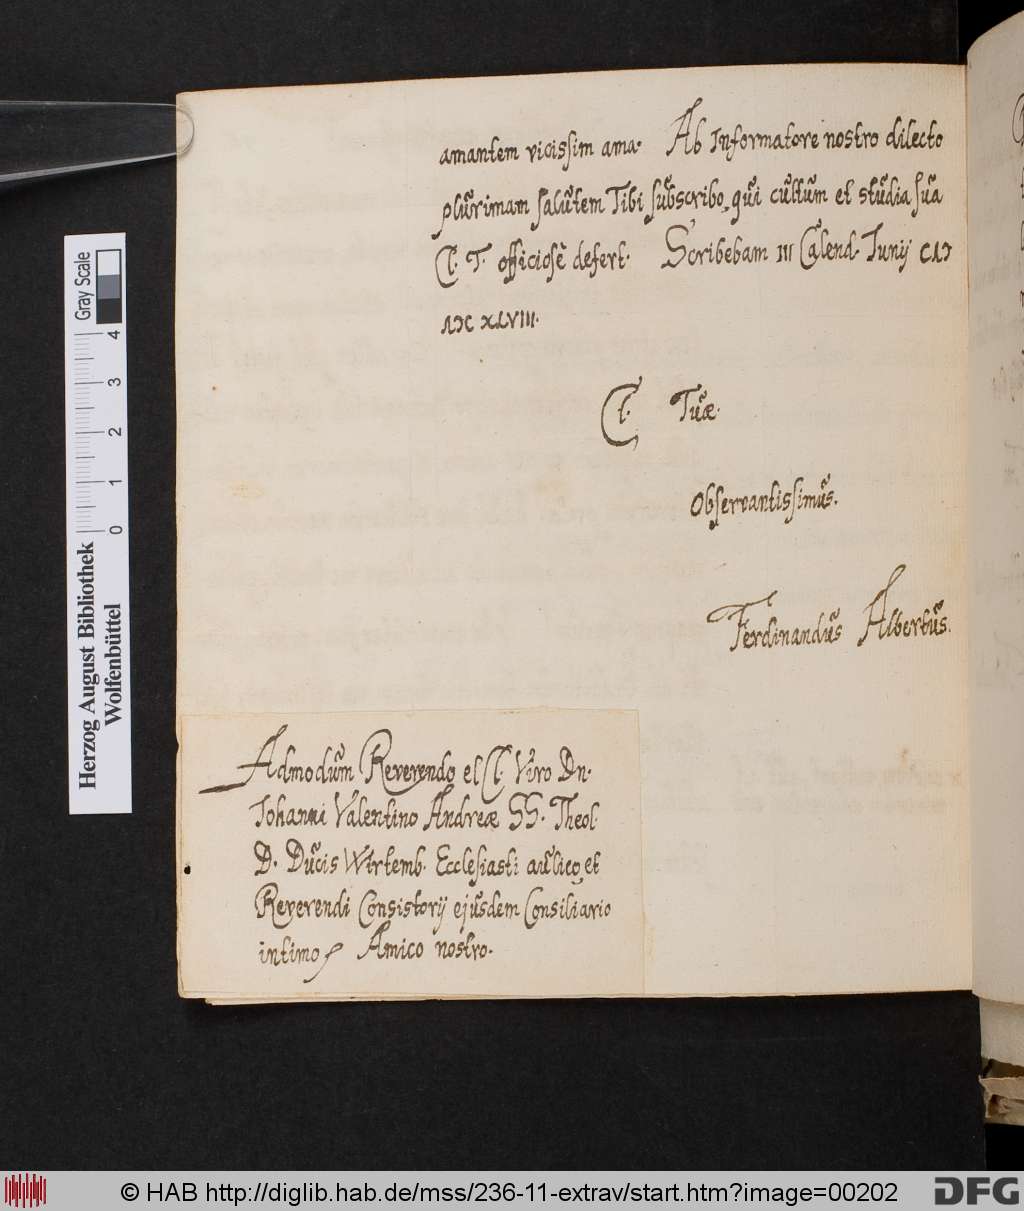 amantem vicissim ama. Ab Informatore nostro dilecto
plurimam salutem Tibi subscribo, qui cultum et studia sua
Cl. T. officiosè defert. Scribebam III Calend. Junij CIƆ
IƆC XLVIII.
Cl. Tuæ.
Observantissimus.
Ferdinandus Albertus.
Admodum Reverendo et Cl. Viro Dn.
Johanni Valentino Andreæ SS. Theol.
D. Ducis Wirtemb. Ecclesiasti aulico et
Reverendi Consistorij ejusdem Consiliario
intimo, Amico nostro.
Gray Scale
0 1 2 3 4
Herzog August Bibliothek
Wolfenbüttel
© HAB http://diglib.hab.de/mss/236-11-extrav/start.htm?image=00202
DFG